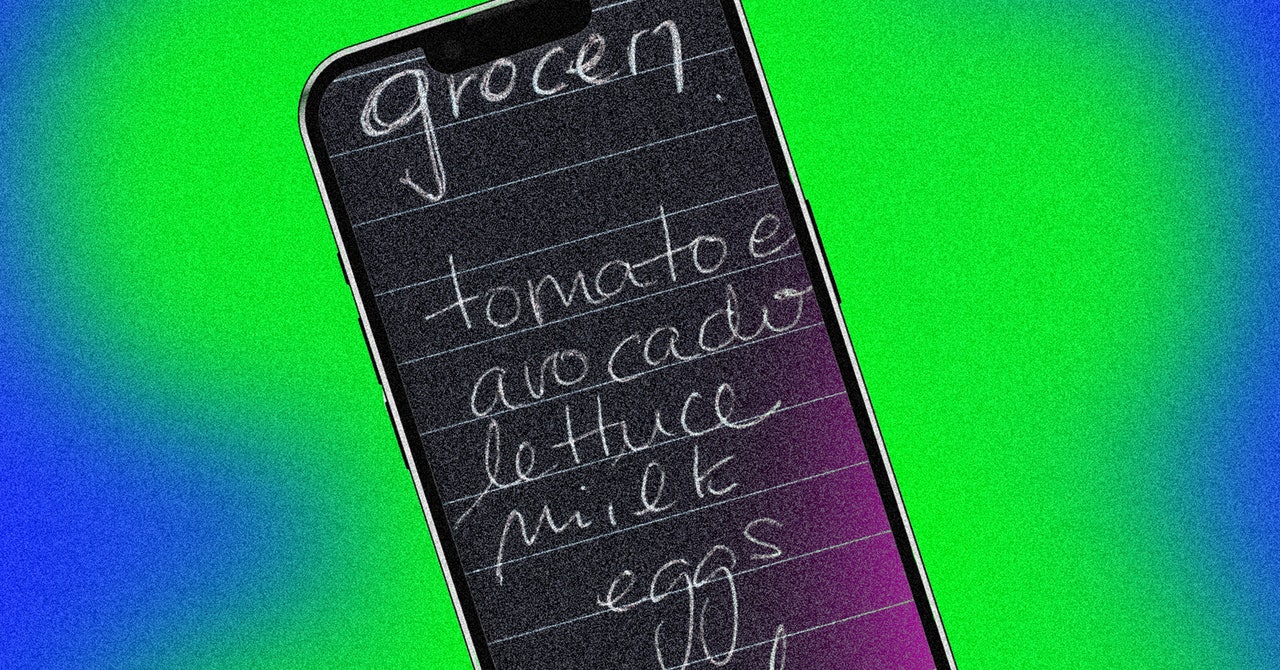 grocery
tomatoe
avocado
lettuce
milk
eggs